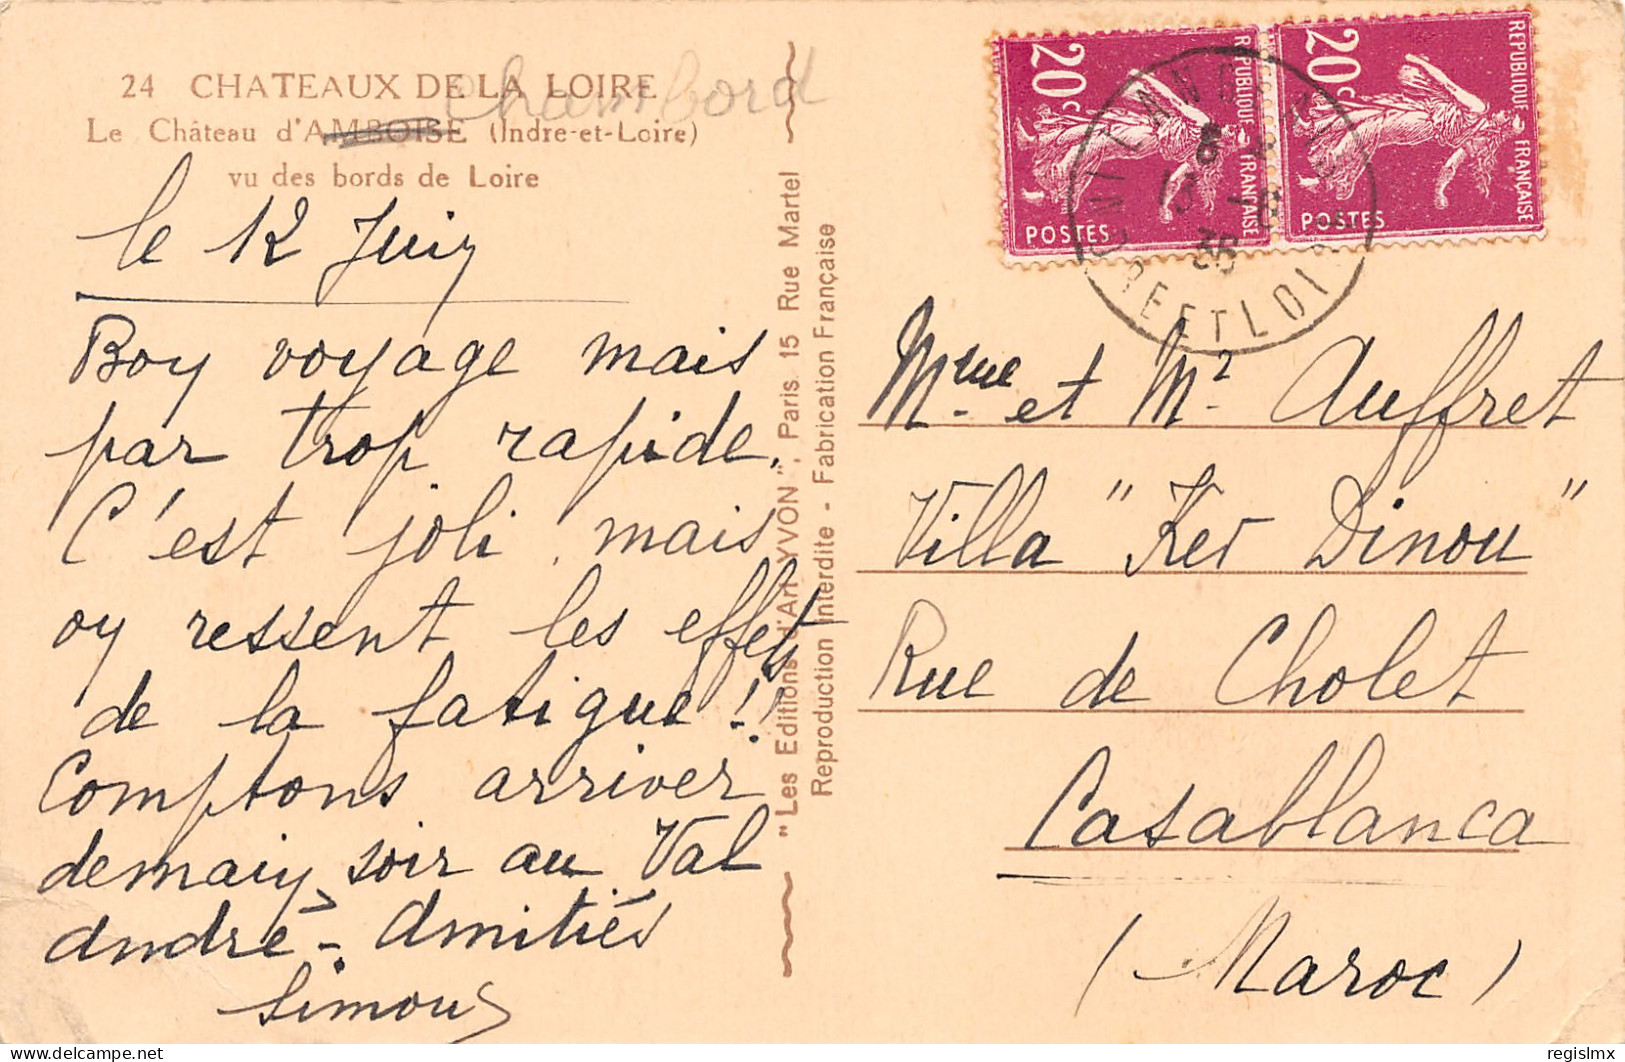 24 CHATEAUX DE LA LOIRE
Chambord
Le Château d'AMBOISE (Indre-et-Loire)
vu des bords de Loire
le 12 Juin
Bon voyage mais
par trop rapide.
C'est joli mais
on ressent les effets
de la fatigue !!
Comptons arriver
demain soir au Val
André - Amitiés
Simon
"Les Editions d'Art YVON", Paris 15 Rue Martel
Reproduction Interdite - Fabrication Française
20c
REPUBLIQUE FRANÇAISE
POSTES
20c
REPUBLIQUE FRANÇAISE
POSTES
13 -6
36
Mme et Mr Auffret
Villa "Ker Dinou"
Rue de Cholet
Casablanca
(Maroc)
regislmx